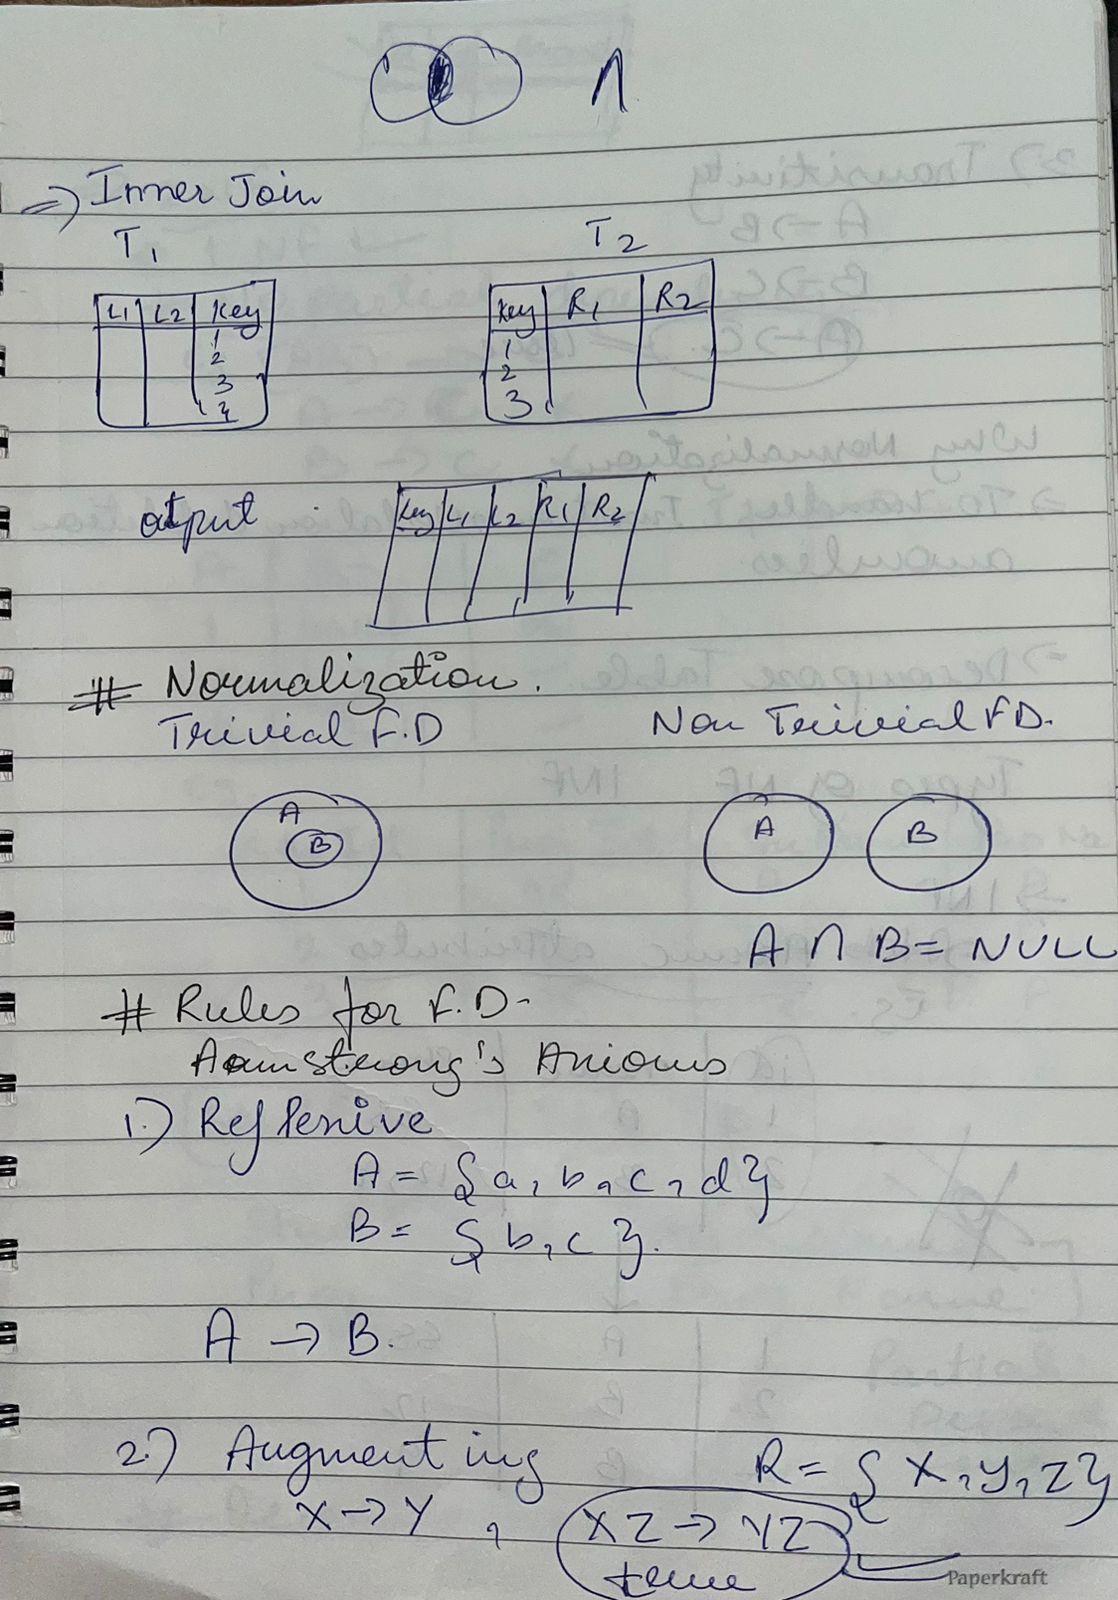 ∩
⇒ Inner Join
T1 T2
L1 L2 Key
1
2
3
Key R1 R2
1
2
3
otput
Key L1 L2 R1 R2
# Normalization.
Trivial F.D Non Trivial F.D.
A
B
A B
A ∩ B = NULL
# Rules for F.D-
Aamstrong's Axioms
1.) Reflexive
A = {a, b, c, d}
B = {b, c}.
A → B.
2.) Augmenting R = {X, Y, Z}
X → Y , XZ → YZ
true
Paperkraft